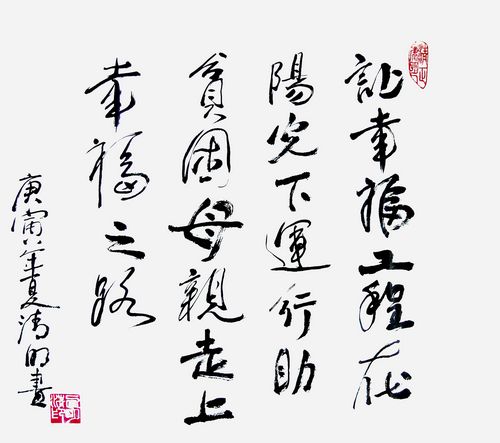 让幸福工程在
陽光下運行助
貧困母親走上
幸福之路
庚寅年夏清明書